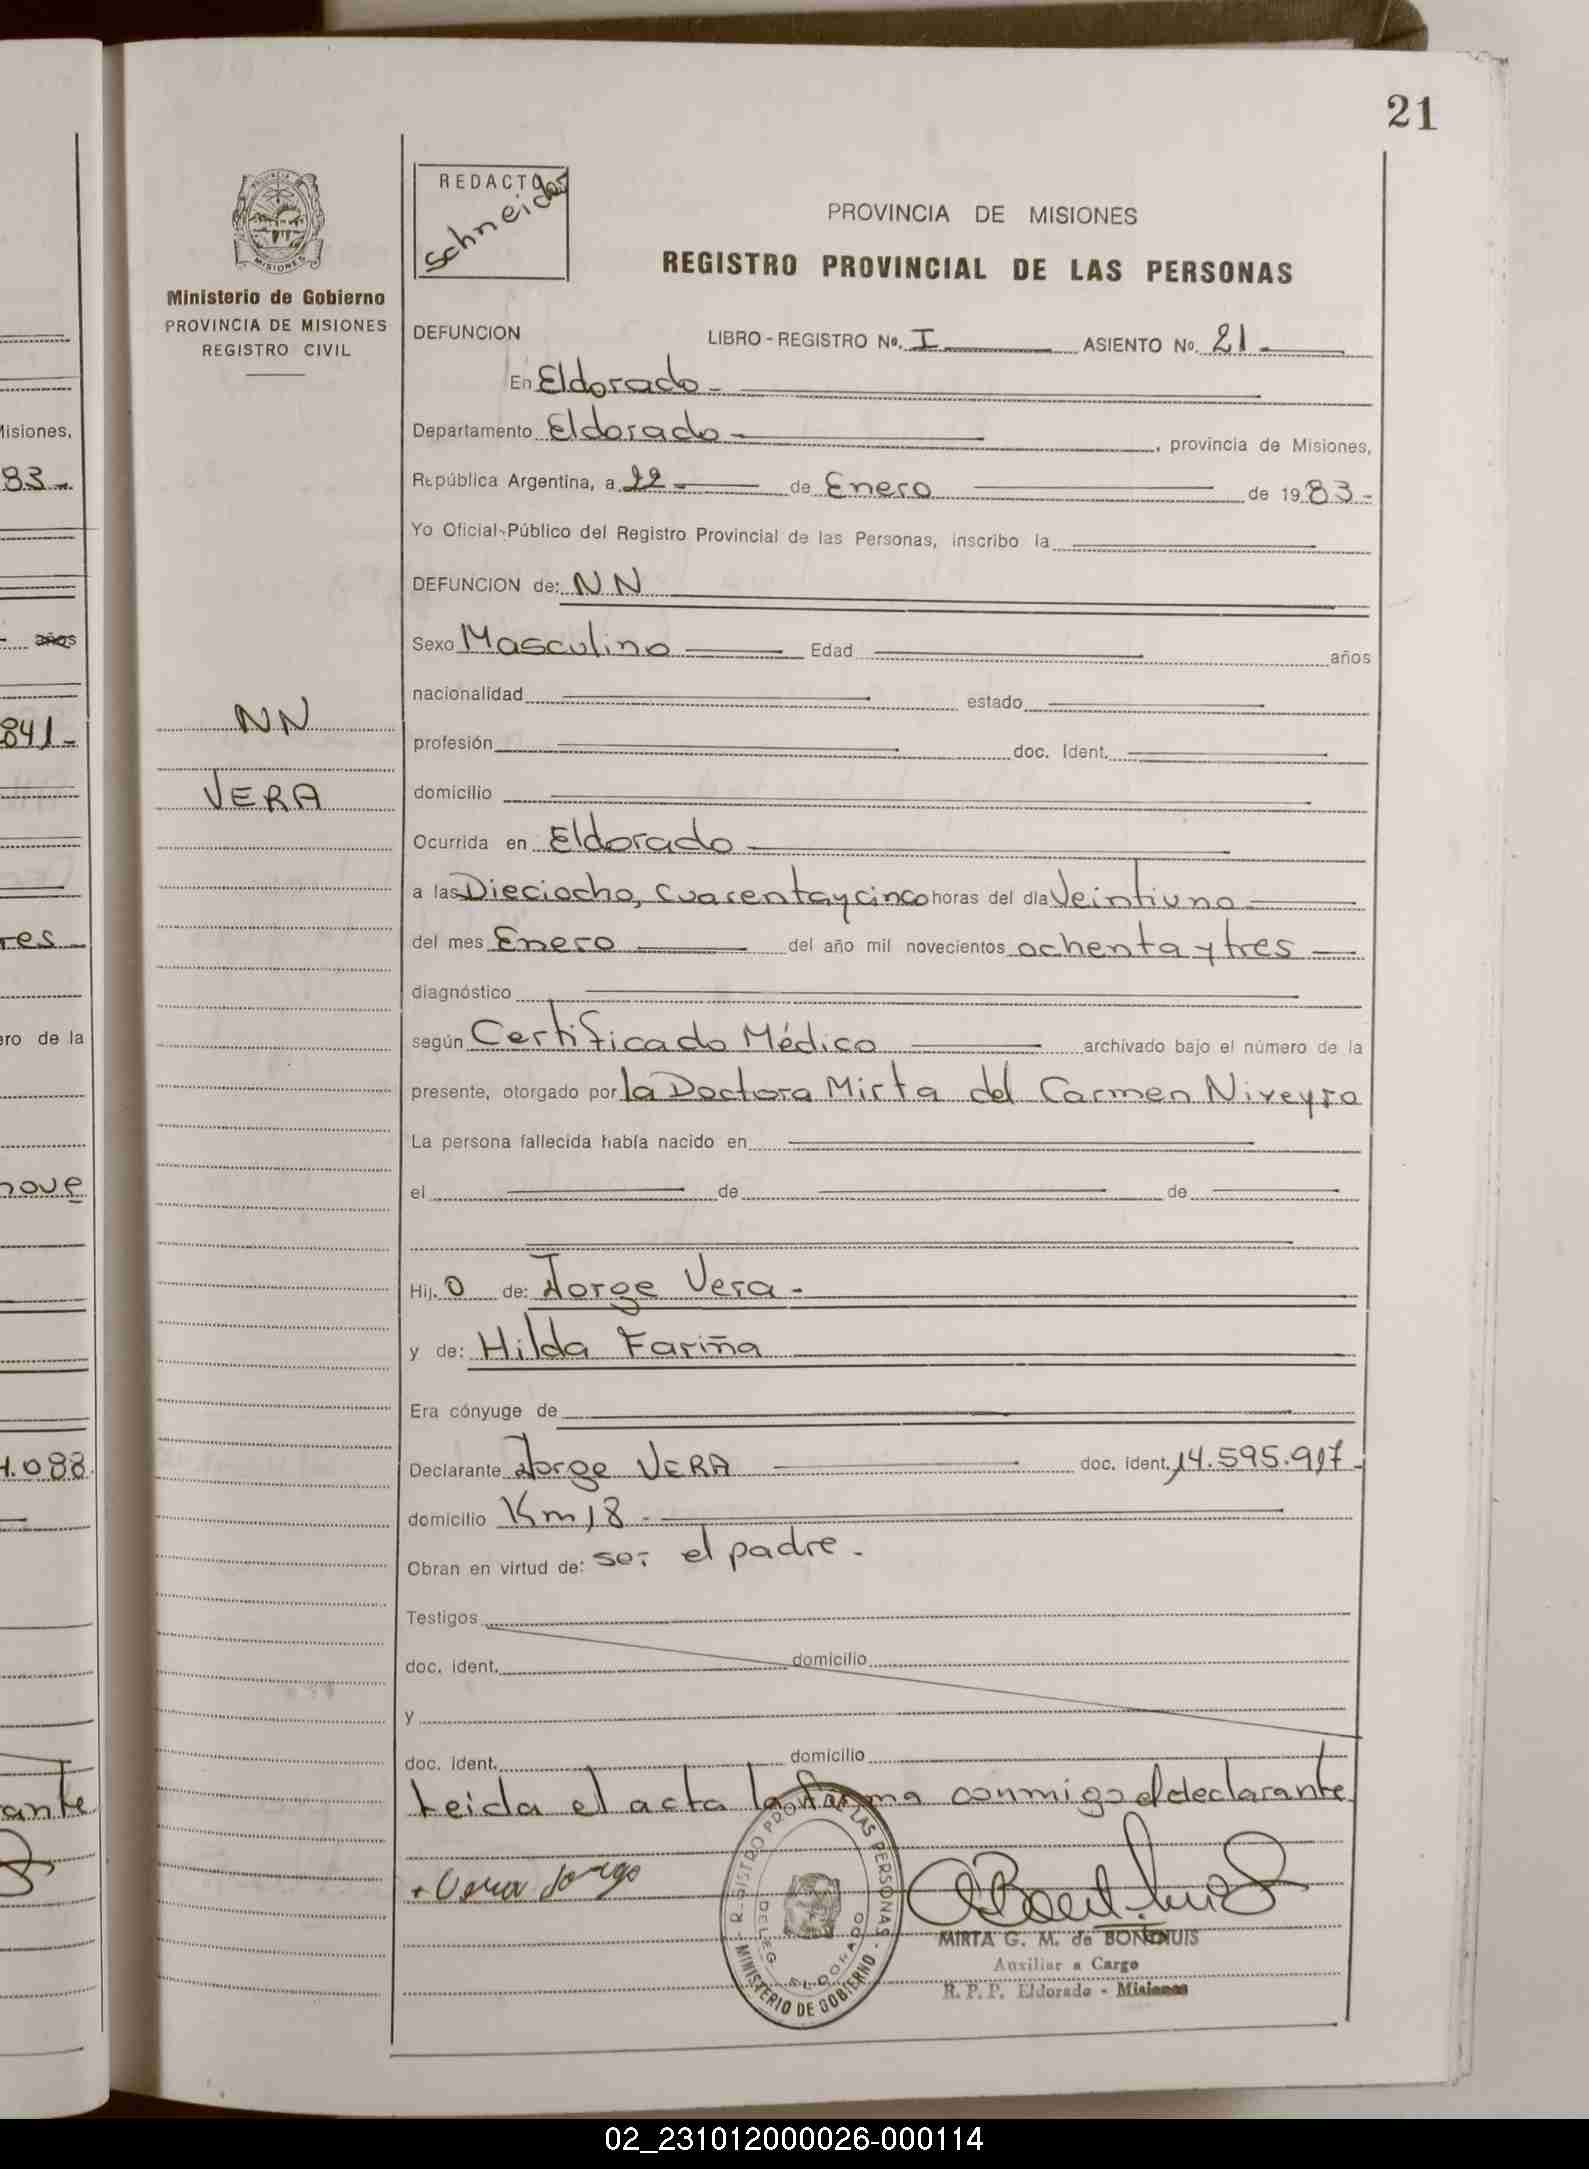 21
REDACTOR
Schneider
PROVINCIA DE MISIONES
REGISTRO PROVINCIAL DE LAS PERSONAS
MISIONES
Ministerio de Gobierno
PROVINCIA DE MISIONES
REGISTRO CIVIL
DEFUNCION LIBRO - REGISTRO No. I ASIENTO No. 21
En Eldorado -
Departamento Eldorado - , provincia de Misiones,
República Argentina, a 22 - de Enero de 1983 -
Yo Oficial Público del Registro Provincial de las Personas, inscribo la
DEFUNCION de: NN
Sexo Masculino Edad años
nacionalidad estado
NN
profesión doc. Ident.
VERA
domicilio
Ocurrida en Eldorado
a las Dieciocho, cuarenta y cinco horas del día Veintiuno
del mes Enero del año mil novecientos ochenta y tres
diagnóstico
según Certificado Médico archivado bajo el número de la
presente, otorgado por la Doctora Mirta del Carmen Niveyro
La persona fallecida había nacido en
el de de
Hij o de: Jorge Vera -
y de: Hilda Fariña
Era cónyuge de
Declarante Jorge VERA doc. ident. 14.595.917 -
domicilio Km 18 -
Obran en virtud de: ser el padre -
Testigos
doc. ident. domicilio
y
doc. ident. domicilio
Leida el acta la firma conmigo el declarante
Vera Jorge
REGISTRO PROV. DE LAS PERSONAS
DELEG. ELDORADO
MINISTERIO DE GOBIERNO
MIRTA G. M. de BONCHUIS
Auxiliar a Cargo
R. P. P. Eldorado - Misiones
Misiones,
83 -
años
841 -
res
ero de la
nove
1.088
ante
02_231012000026-000114